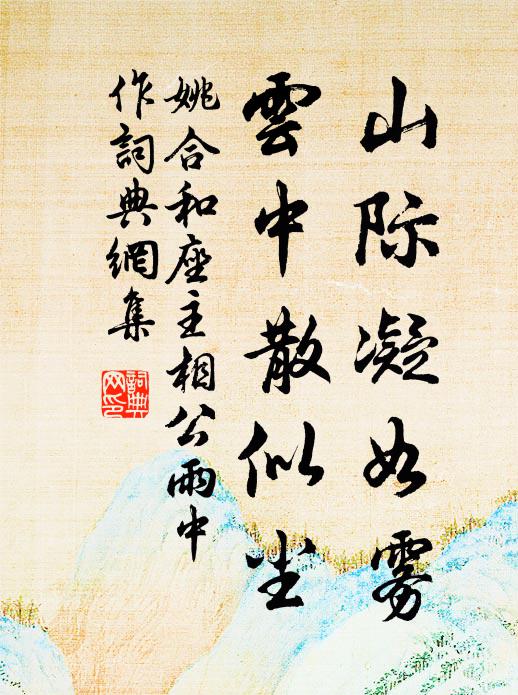 山际凝如雾
雲中散似尘
姚合和座主相公雨中
作詞典網集
詞典
网印